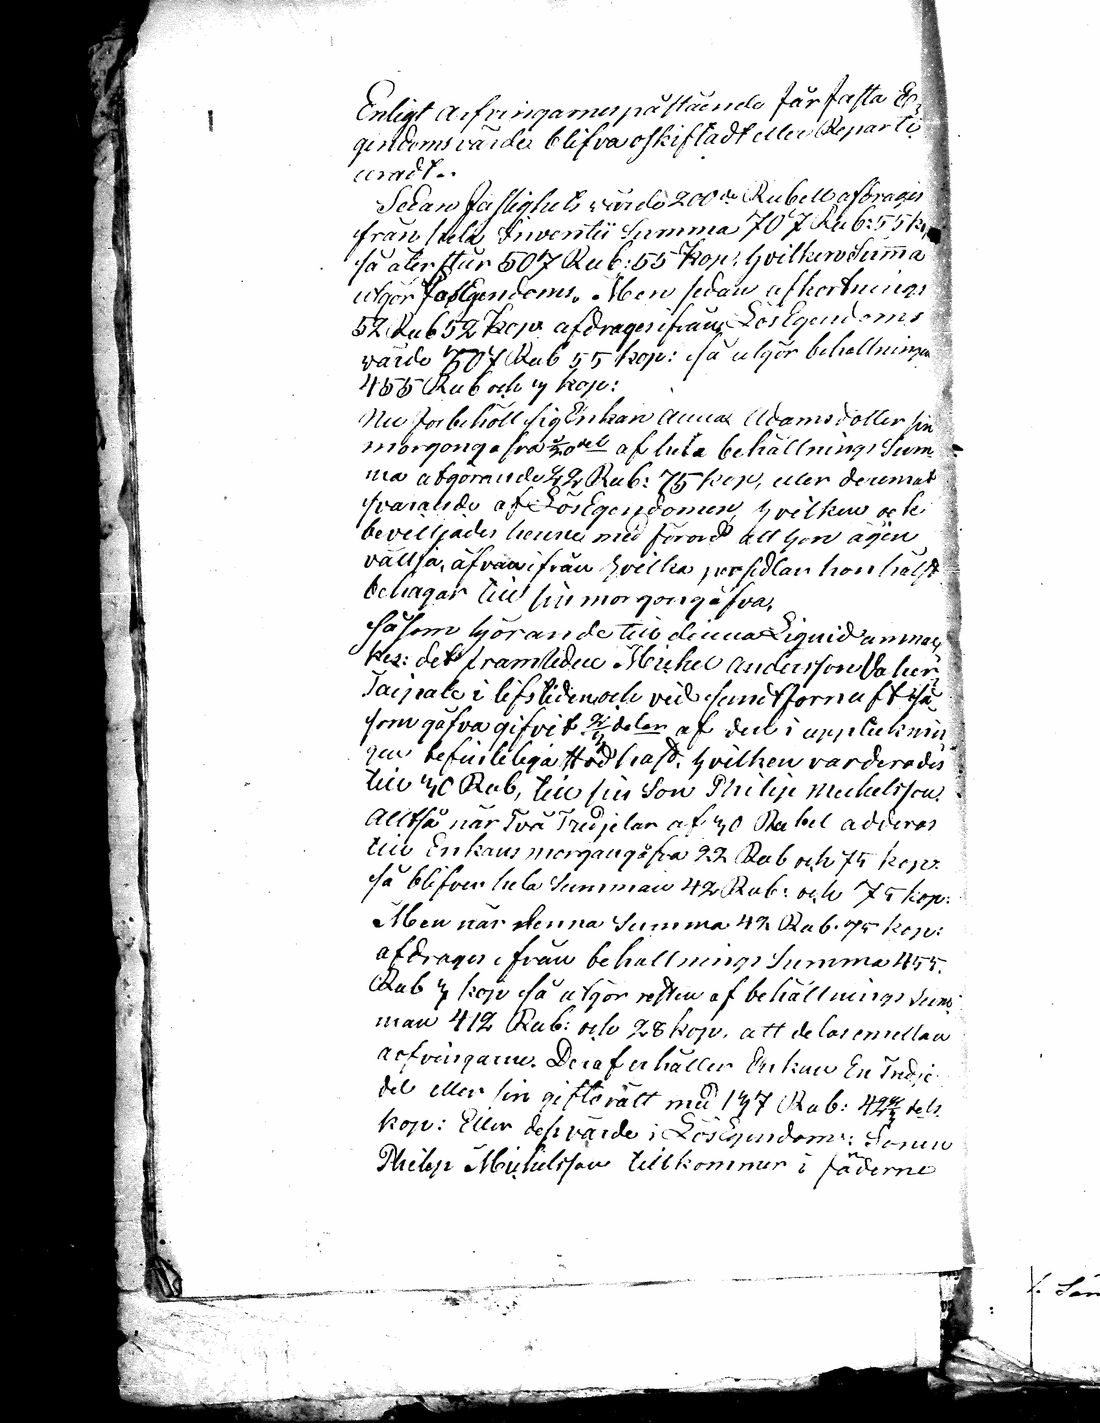 Enligt Arfvingarnes påstående får fasta E-
gendoms värdet blifva oskiftadt eller Reparti
eradt..
Sedan fastighets värde 200de Rubell afdrages
från hela Inventii Summa 707 Rub: 55 kop
så återstår 507 Rub: 55 kop: hvilken Summa
utgör LösEgendoms. Men sedan afkortnings
52 Rub 52 kop. afdrages ifrån LösEgendoms
värde 507 Rub 55 kop: så utgör behållningen
455 Rub och 3 kop:
Nu forbehöll sig Enkan Anna Adamsdotter sin
morgongåfva 1/20 del af hela behållnings Sum-
ma utgörande 22 Rub: 75 kop, eller deremot
svarande af LösEgendomen, hvilken och
beviljades henne med förord att hon ägen
vällja, äfvan ifrån hvilka persedlar hon hälst
behagar till sin morgongåfva,
Såsom hörande till denna Liquid anmär
kes: det framledne Michel Andersson Vaher
Taipale i lifstiden och vid sundt fornuft så
som gåfva gifvit 2/3 delar af den i uppteknin
gen befinteliga hast, hvilken varderades
till 30 Rub, till sin Son Philip Michelsson.
Alltså när Två Tredjelar af 30 Rubel adderas
till Enkans morgongåfva 22 Rub och 75 kop.
så blifver hela Summan 42 Rub: och 75 kop:
Men när denna Summa 42 Rub. 75 kop:
afdrages ifrån behållnings Summa 455.
Rub 3 kop så utgör resten af behållnings Sum
man 412 Rub: och 28 kop. att delas emellan
arfvingarne. Deraf erhåller Enkan En Tredje
del eller sin giftorätt med 137 Rub: 42 2/3 dels
kop: Eller dess värde i LösEgendom: Sonen
Philip Michelsson tillkommer i fäderne